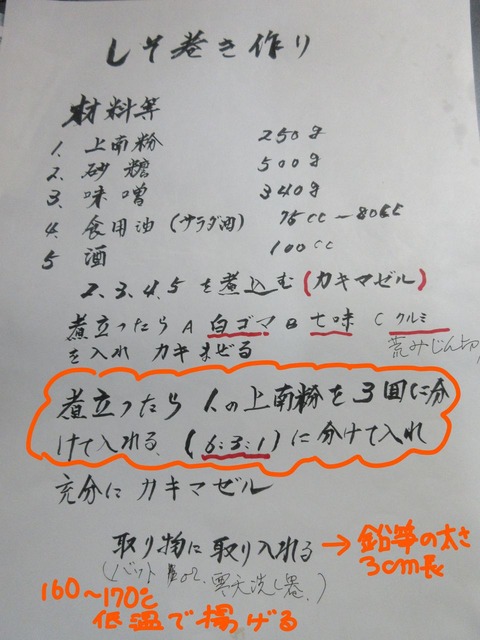 しそ巻き作り
材料等
1. 上南粉 250g
2. 砂糖 500g
3. 味噌 340g
4. 食用油 (サラダ油) 75cc〜80cc
5 酒 100cc
2、3、4、5を煮込む (カキマゼル)
煮立ったら A 白ゴマ B 七味 C クルミ
を入れ カキまぜる 荒みじん切
煮立ったら 1の上南粉を3回に分
けて入れる、(6:3:1)に分けて入れ
充分にカキマゼル
取り物に取り入れる → 鉛筆の太さ
(バット or 寒天流し器) 3cm長
160〜170℃
低温で揚げる